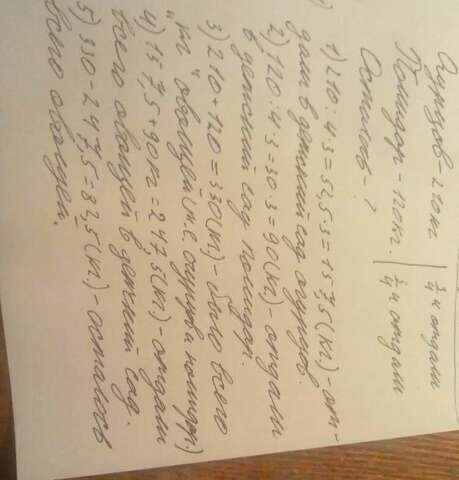 Огурцов - 210 кг. | 3/4 н отдали
Помидор - 120 кг. | 3/4 н отдали
Осталось - ?
1) 210 : 4 · 3 = 52,5 · 3 = 157,5 (кг) - от-
дали в детский сад огурцов.
2) 120 : 4 · 3 = 30 · 3 = 90 (кг) - отдали
в детский сад помидор.
3) 210 + 120 = 330 (кг) - было всего
кг овощей (т.е. огурцов и помидор)
4) 157,5 + 90 кг = 247,5 (кг) - отдали
всего овощей в детский сад.
5) 330 - 247,5 = 82,5 (кг) - осталось
всего овощей.